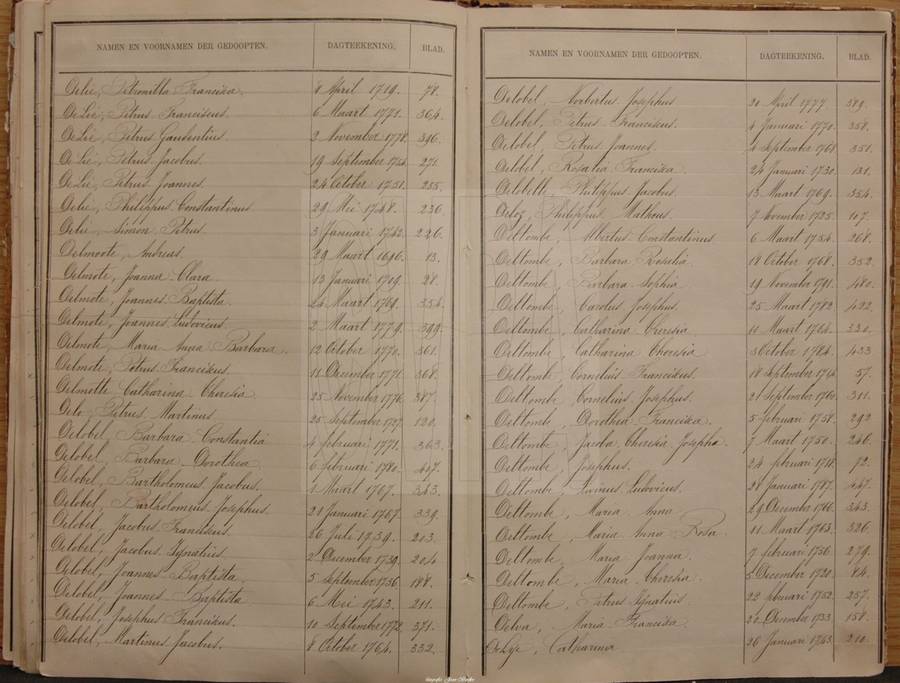 NAMEN EN VOORNAMEN DER GEDOOPTEN. DAGTEEKENING. BLAD.
Delie, Petronilla Francisca. 4 April 1719. 78.
De Lie, Petrus Franciscus. 6 Maart 1771. 364.
De Lie, Petrus Gaudentius. 2 November 1778. 396.
De Lie, Petrus Jacobus. 19 September 1754. 271.
De Lie, Petrus Joannes. 24 October 1751. 255.
Delie, Philippus Constantinus. 29 Mei 1748. 236.
Delie, Simon Petrus. 3 Januari 1742. 226.
Delmoote, Andreas. 29 Maart 1696. 13.
Delmote, Joanna Clara. 13 Januari 1709. 28.
Delmote, Joannes Baptista. 24 Maart 1769. 354.
Delmote, Joannes Ludovicus. 2 Maart 1779. 399.
Delmote, Maria Anna Barbara. 12 October 1770. 361.
Delmote, Petrus Franciscus. 11 December 1771. 368.
Delmotte, Catharina Theresia. 25 November 1776. 387.
Delo, Petrus Martinus. 25 September 1727. 120.
Delobel, Barbara Constantia. 4 februari 1771. 363.
Delobel, Barbara Dorothea. 6 februari 1780. 407.
Delobel, Bartholomeus Jacobus. 1 Maart 1767. 343.
Delobel, Bartholomeus Josephus. 21 Januari 1767. 339.
Delobel, Jacobus Franciscus. 26 Juli 1739. 203.
Delobel, Jacobus Ignatius. 2 December 1739. 204.
Delobel, Joannes Baptista. 5 September 1736. 188.
Delobel, Joannes Baptista. 6 Mei 1743. 211.
Delobel, Josephus Franciscus. 10 September 1772. 371.
Delobel, Martinus Jacobus. 8 October 1764. 332.
NAMEN EN VOORNAMEN DER GEDOOPTEN. DAGTEEKENING. BLAD.
Delobel, Norbertus Josephus. 20 April 1777. 389.
Delobel, Petrus Franciscus. 4 Januari 1770. 358.
Delobel, Petrus Joannes. 4 September 1768. 351.
Delobel, Rosalia Francisca. 24 Januari 1730. 131.
Delobelle, Philippus Jacobus. 13 Maart 1769. 354.
Deloz, Philippus Matheus. 7 November 1725. 107.
Deltombe, Albertus Constantinus. 6 Maart 1754. 268.
Deltombe, Barbara Rosalia. 18 October 1768. 352.
Deltombe, Barbara Sophia. 19 November 1791. 480.
Deltombe, Carolus Josephus. 25 Maart 1782. 422.
Deltombe, Catharina Theresia. 11 Maart 1764. 330.
Deltombe, Catharina Theresia. 3 October 1784. 433.
Deltombe, Cornelius Franciscus. 18 September 1714. 57.
Deltombe, Cornelius Josephus. 21 September 1760. 311.
Deltombe, Dorothea Francisca. 5 februari 1758. 292.
Deltombe, Jacoba Theresia Josepha. 7 Maart 1750. 246.
Deltombe, Josephus. 24 februari 1718. 72.
Deltombe, Livinus Ludovicus. 28 Januari 1787. 447.
Deltombe, Maria Anna. 29 December 1766. 343.
Deltombe, Maria Anna Rosa. 11 Maart 1763. 326.
Deltombe, Maria Joanna. 7 februari 1756. 279.
Deltombe, Maria Theresia. 5 December 1720. 84.
Deltombe, Petrus Ignatius. 22 februari 1752. 257.
Delva, Maria Francisca. 21 December 1733. 158.
De Lye, Catharina. 26 Januari 1743. 210.